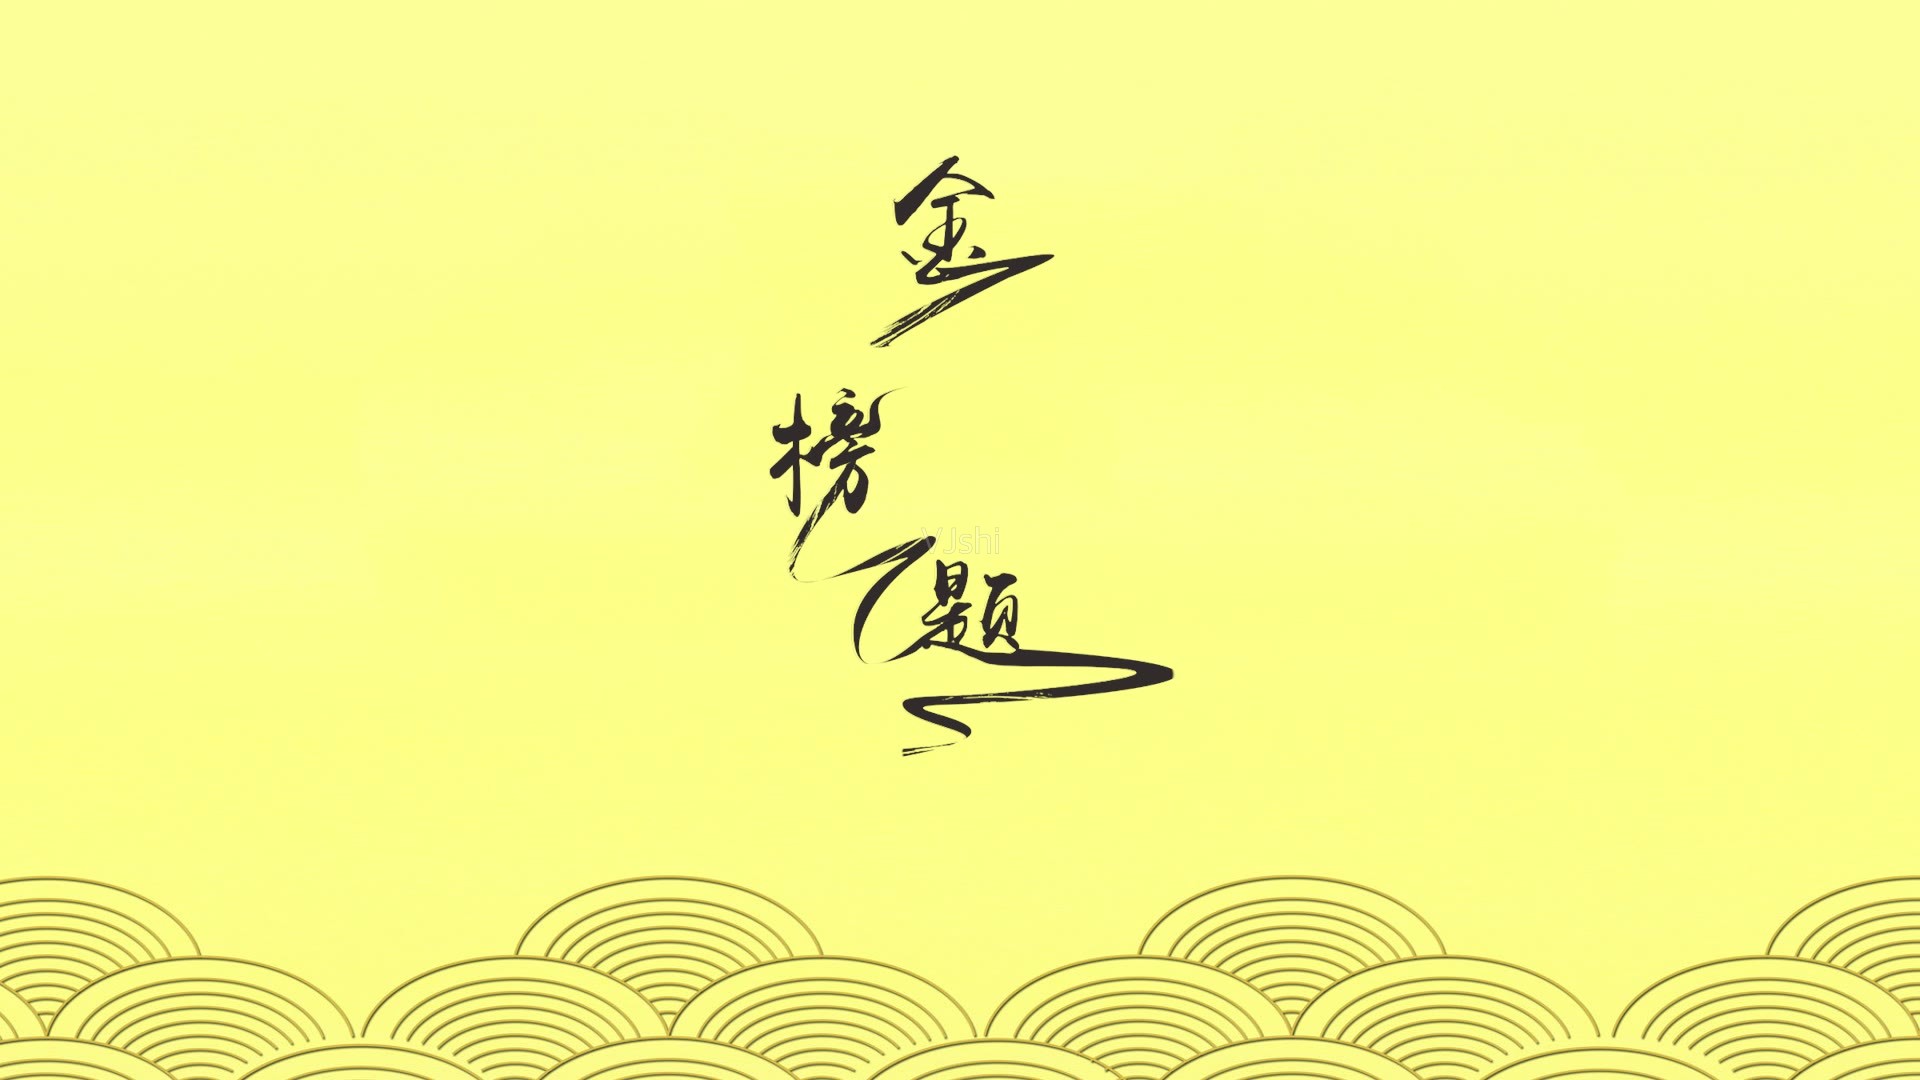 金
榜
题
VJshi